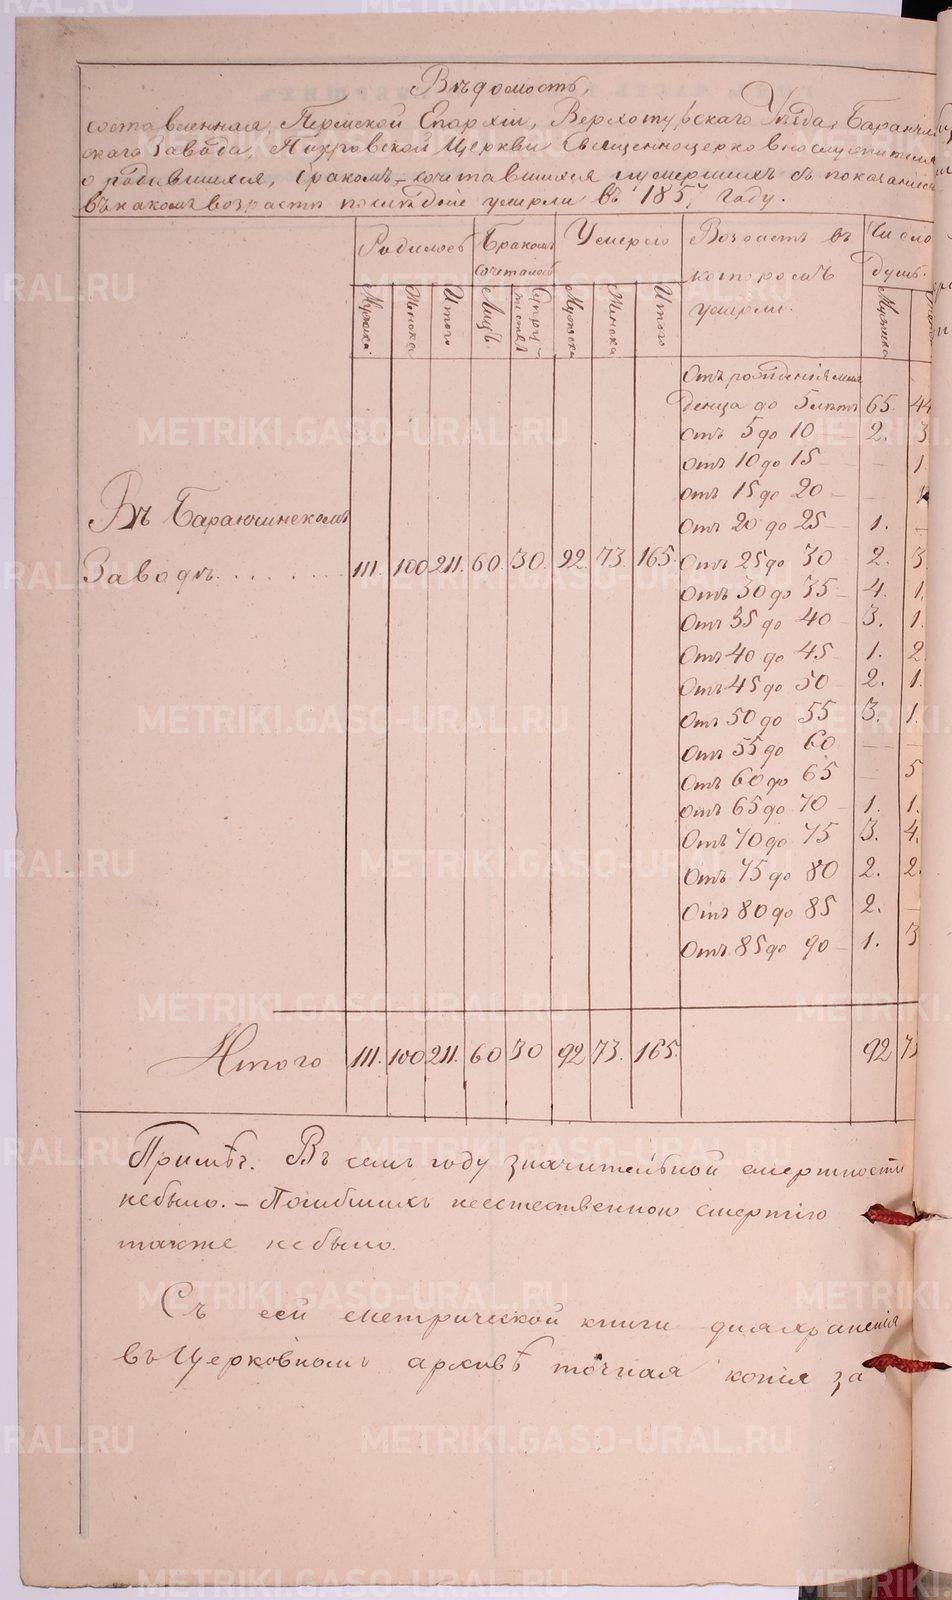 Вѣдомость,
составленная, Пермской Епархіи, Верхотурскаго Уѣзда, Баранчин-
скаго Завода, Покровской Церкви Священноцерковнослужителями
о родившихся, бракомъ-сочетавшихся и умершихъ съ показаніемъ
въ какомъ возрастѣ послѣдніе умерли въ 1857 году.
Родилось Бракомъ сочеталось Умерло Возрастъ въ которомъ умерли. Число душъ.
Мужска Женска Итого Лицъ. Супружествъ Мужска Женска Итого Мужска
Отъ рожденія мла
денца до 5 лѣтъ 65. 44
Отъ 5 до 10 – 2. 3
Отъ 10 до 15 – – 1.
Отъ 15 до 20 – –
Въ Баранчинскомъ
Отъ 20 до 25 – 1. –
Заводѣ. . . . . . . . 111. 100 211. 60. 30. 92. 73. 165. Отъ 25 до 30 2. 3
Отъ 30 до 35 – 4. 1.
Отъ 35 до 40 – 3. 1.
Отъ 40 до 45 1. 2
Отъ 45 до 50 – 2. 1.
Отъ 50 до 55 3. 1.
Отъ 55 до 60 – –
Отъ 60 до 65 – 5
Отъ 65 до 70 – 1. 1.
Отъ 70 до 75 3. 4.
Отъ 75 до 80 2. 2.
Отъ 80 до 85 2. –
Отъ 85 до 90 – 1. 3
Итого 111. 100 211. 60 30 92 73. 165. 92 73
Примѣч. Въ семъ году значительной смертности
не было. – Погибшихъ неестественною смертію
также не было.
Съ сей метрической книги для храненія
въ Церковномъ архивѣ точная копія за
METRIKI.GASO-URAL.RU